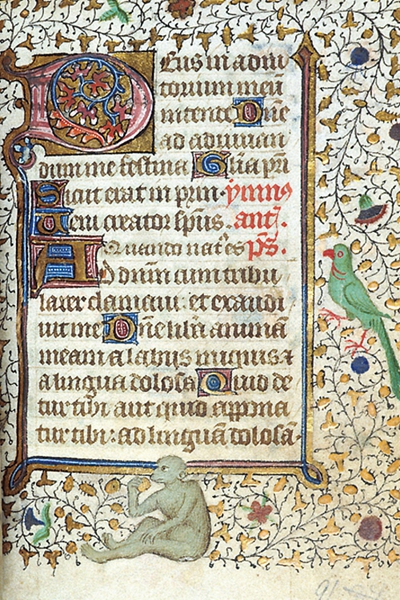 Deus in adiu
torium meū
intende Dñe
ad adiuuan
dum me festina Glīa pr̄i
Sicut erat in prin ymnus
Veni creator sp̄us. anth̄.
Quando nat⁹ es ps̄.
Ad dn̄um cum tribu
larer clamaui : et exaudi
uit me Dn̄e libera animam
meam a labiis iniquis ⁊
a lingua dolosa Quid de
tur tibi aut quid appona
tur tibi : ad linguā dolosā.